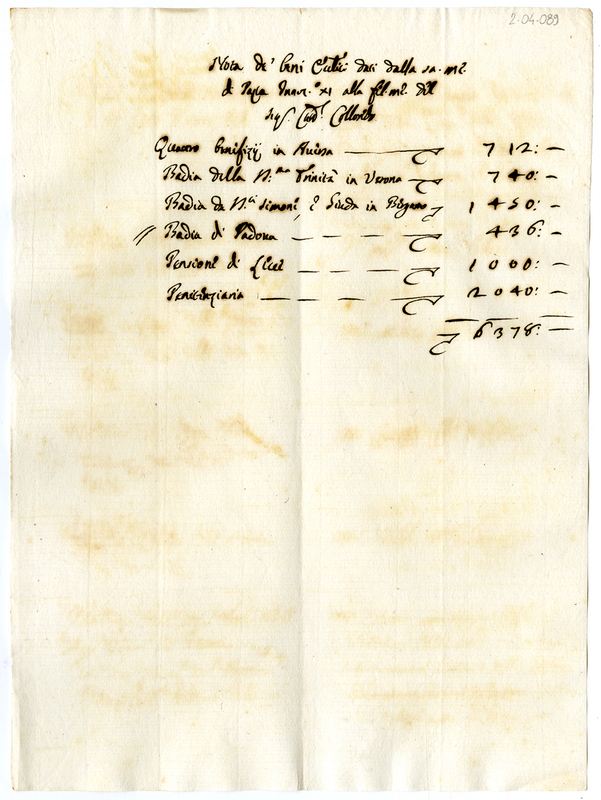 2-04-089
Nota de' beni Ecc.ci dati dalla sa. me.
di Papa Innoc.o XI alla fel. me. del
Sig.r Card.l Colloredo
Quattro benefizij in Auersa — 712: —
Badia della S.ma Trinità in Verona — 740: —
Badia da Simone, e Giuda in 1450: —
// Badia di Padoua — — — 436: —
Pensioni di — — — 1000: —
Penitenziaria — — — — 2040: —
6378: —